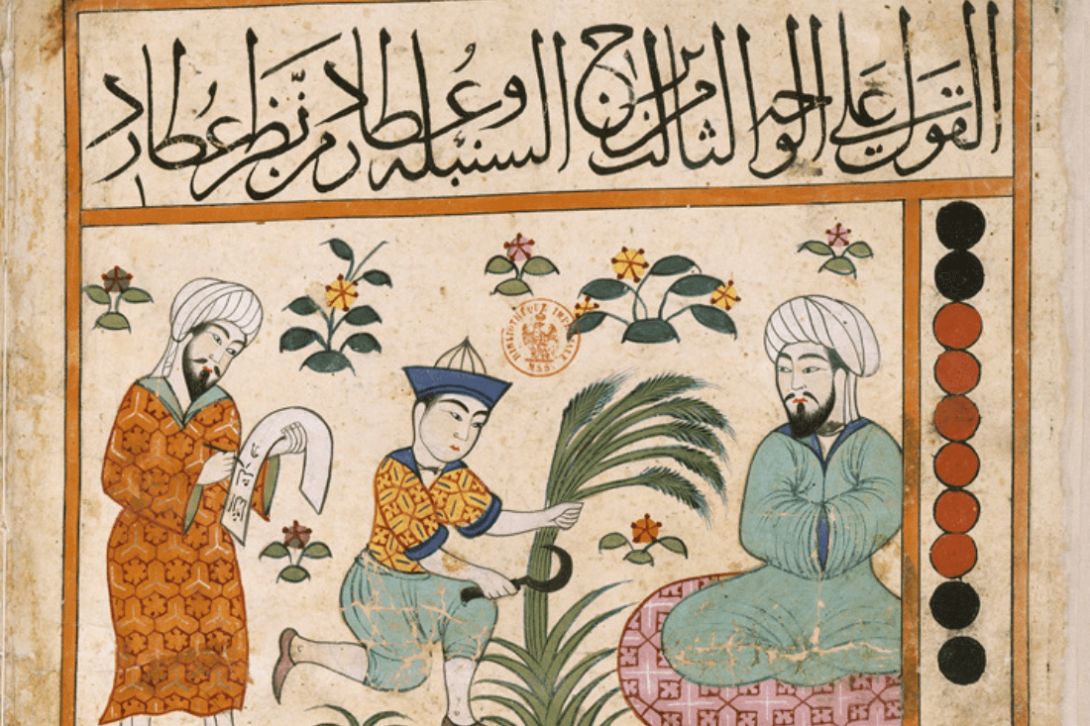 القول علي الوجه الثالث من برج السنبله وعطارد من نظر عطارد
BIBLIOTHÈQUE IMPÉRIALE
MSS.